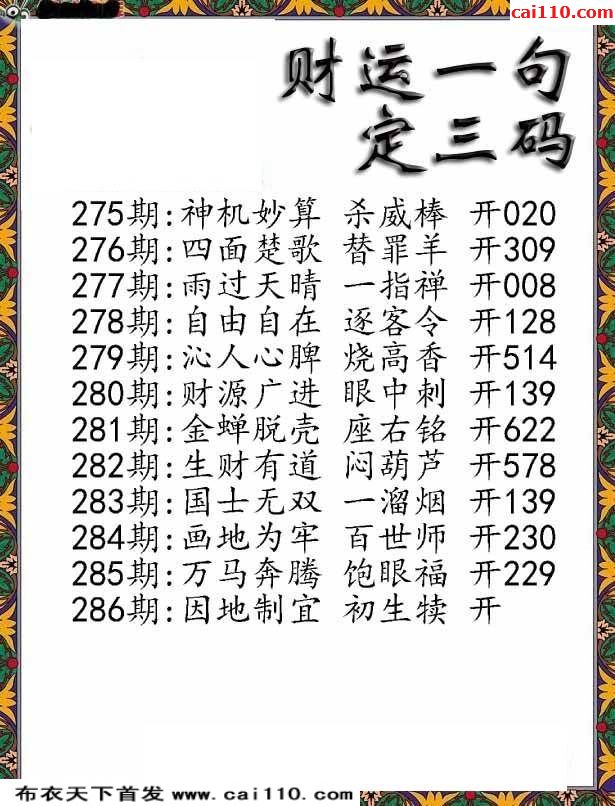 cai110.com
财运一句
定三码
275期:神机妙算 杀威棒 开020
276期:四面楚歌 替罪羊 开309
277期:雨过天晴 一指禅 开008
278期:自由自在 逐客令 开128
279期:沁人心脾 烧高香 开514
280期:财源广进 眼中刺 开139
281期:金蝉脱壳 座右铭 开622
282期:生财有道 闷葫芦 开578
283期:国士无双 一溜烟 开139
284期:画地为牢 百世师 开230
285期:万马奔腾 饱眼福 开229
286期:因地制宜 初生犊 开
布衣天下首发 www.cai110.com